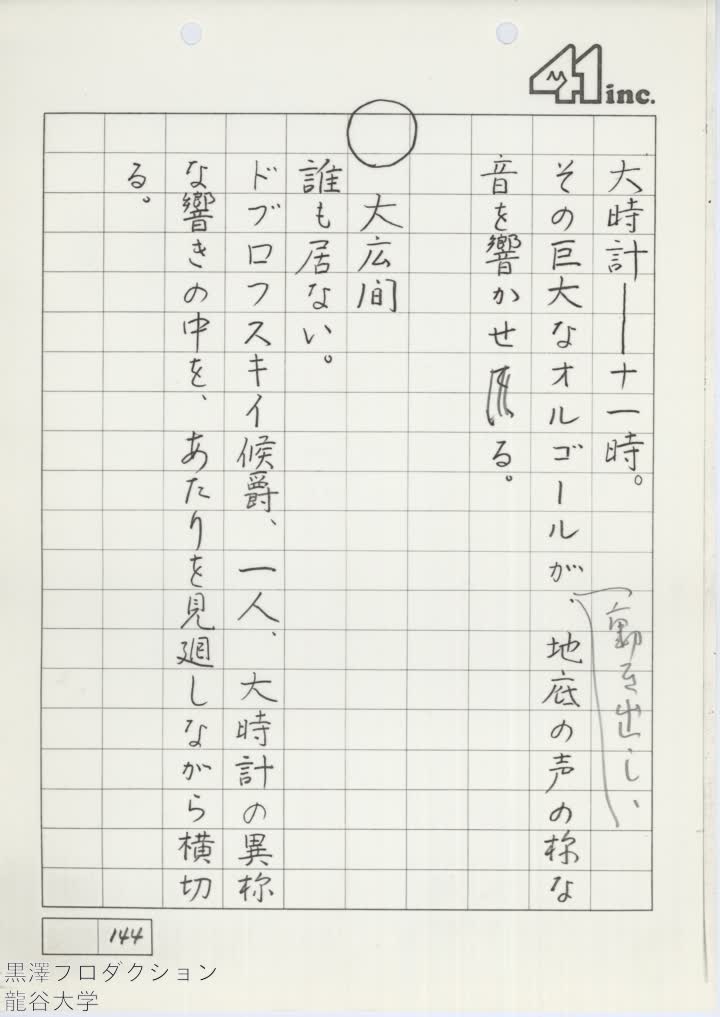 41 inc.
大時計――十一時。
その巨大なオルゴールが、地底の声の様な
動き出し、
音を響かせる。
○ 大広間
誰も居ない。
ドブロフスキイ候爵、一人、大時計の異様
な響きの中を、あたりを見廻しながら横切
る。
144
黒澤プロダクション
龍谷大学